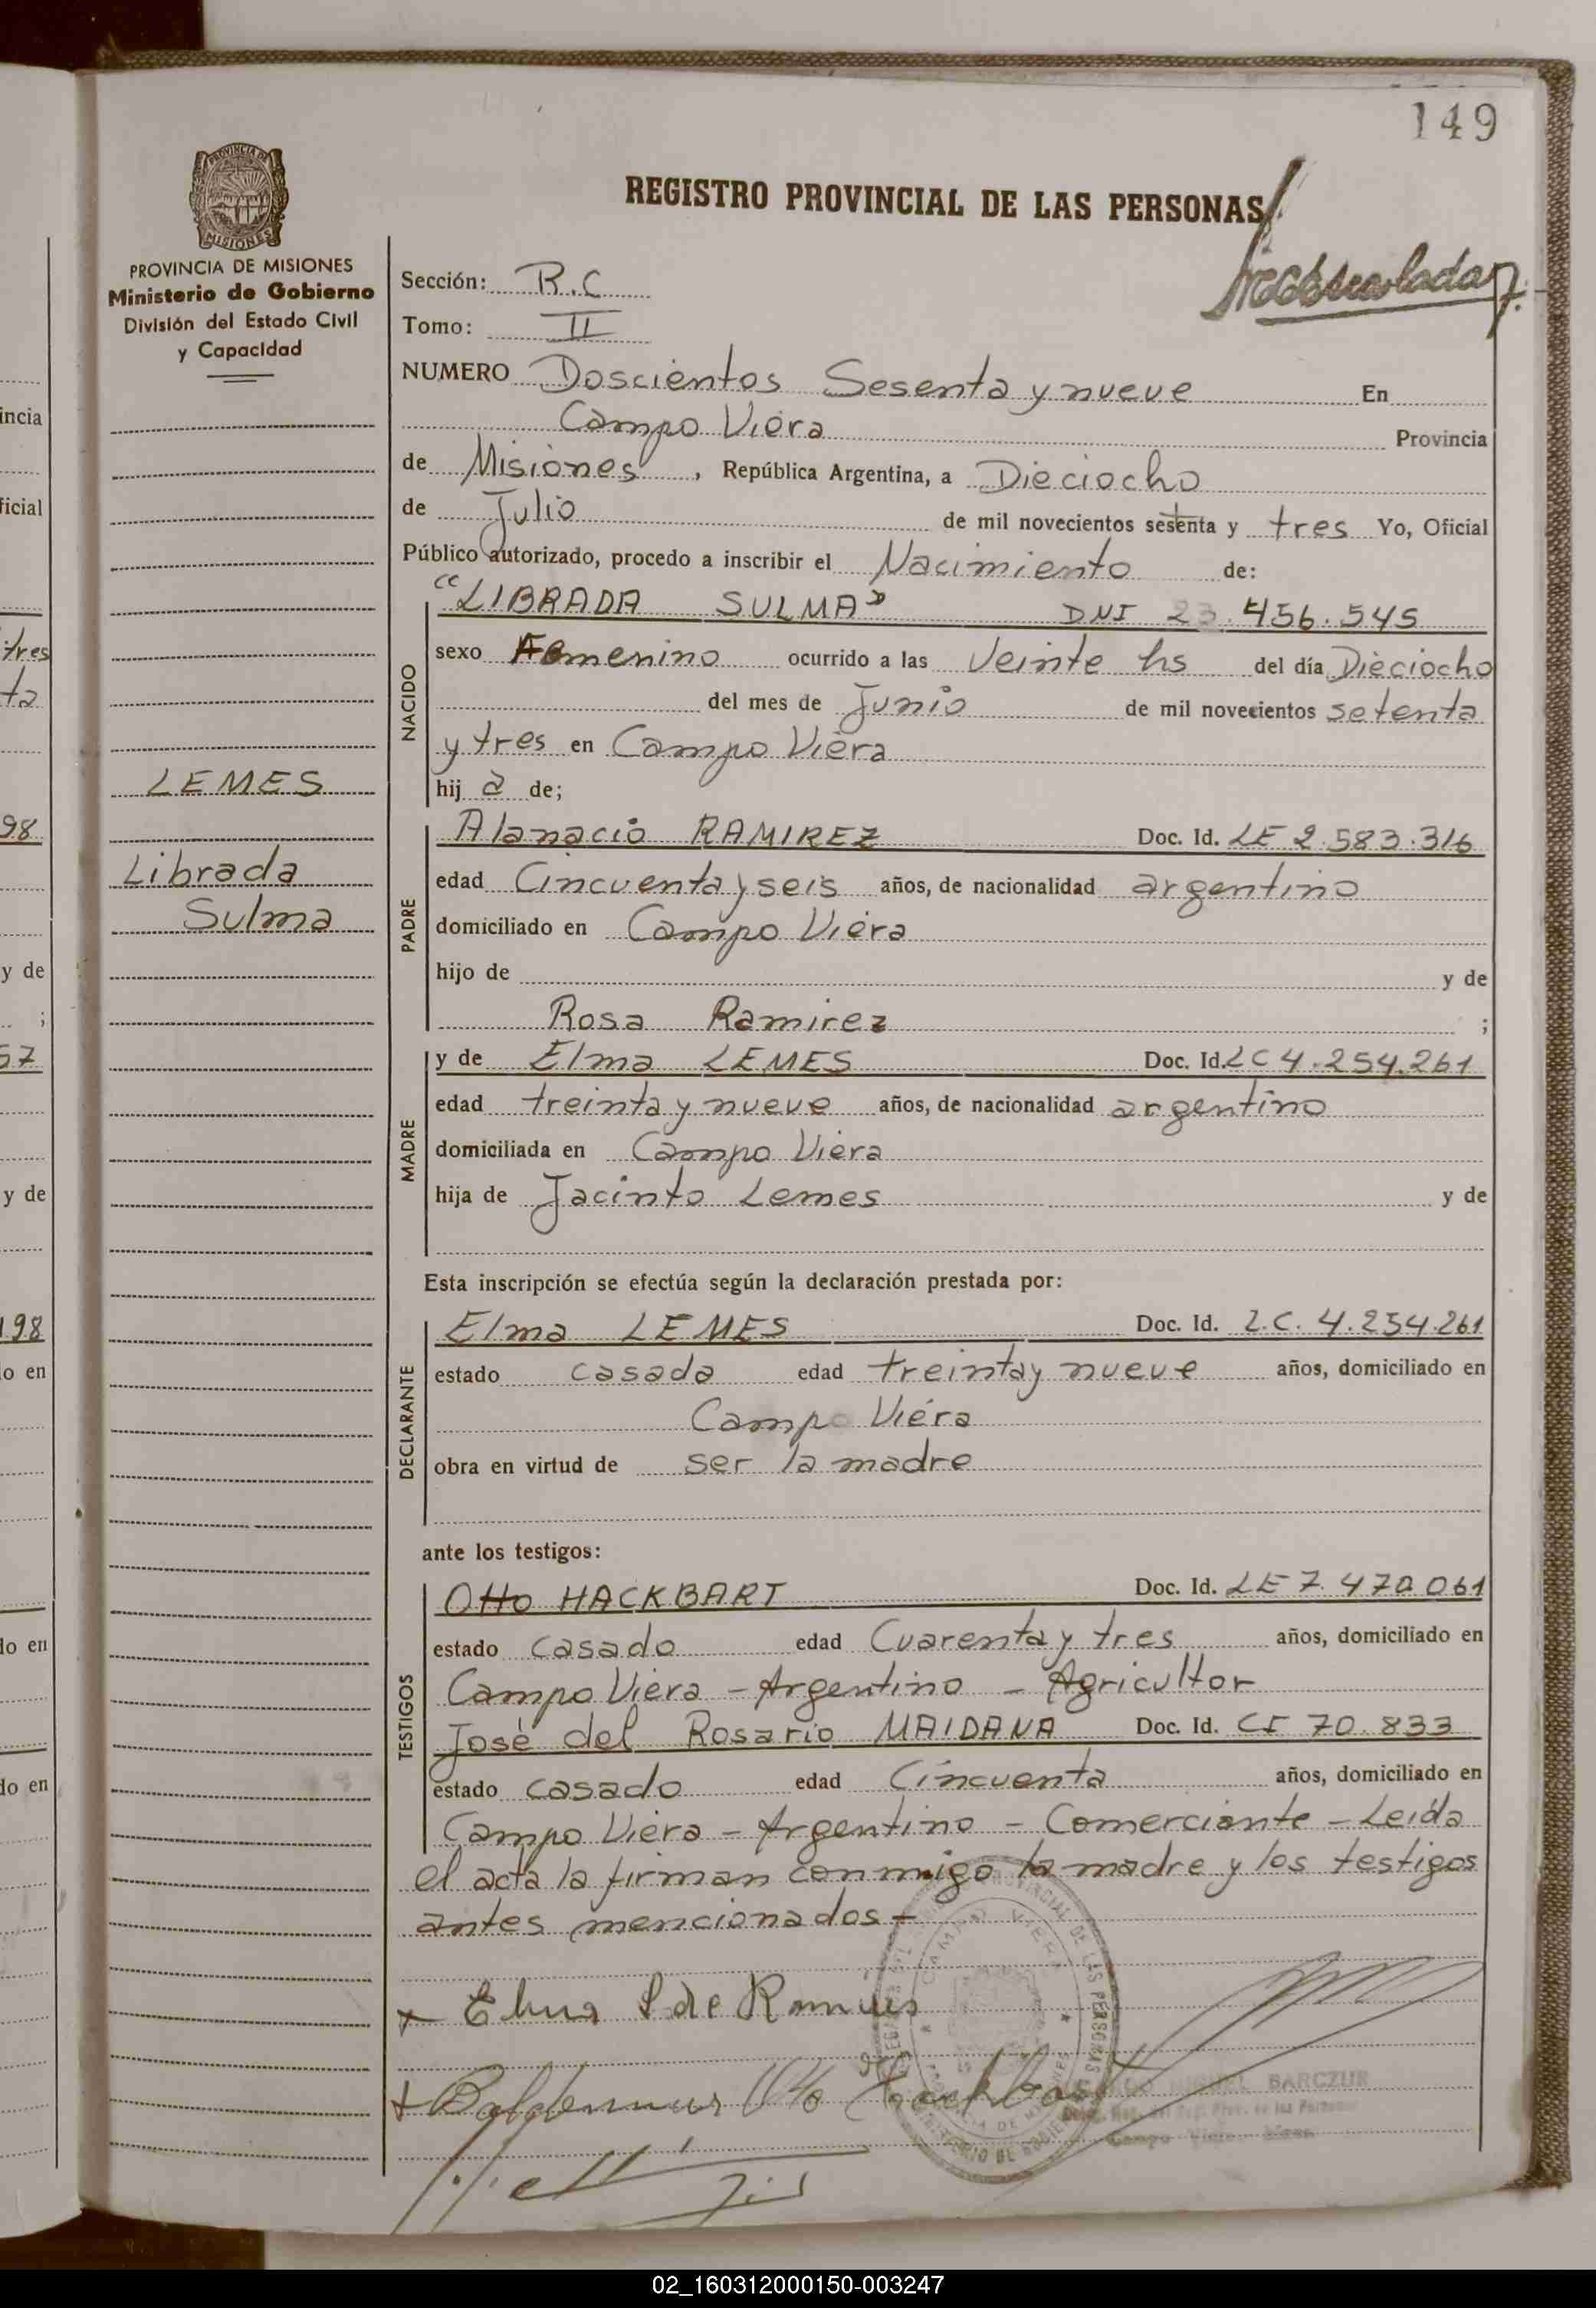 149
REGISTRO PROVINCIAL DE LAS PERSONAS
PROVINCIA DE MISIONES
Ministerio de Gobierno
División del Estado Civil
y Capacidad
LEMES
Librada
Sulma
Sección: R.C
Tomo: II
NUMERO Doscientos Sesenta y nueve En
Campo Viera Provincia
de Misiones, República Argentina, a Dieciocho
de Julio de mil novecientos setenta y tres Yo, Oficial
Público autorizado, procedo a inscribir el Nacimiento de:
"LIBRADA SULMA" DNI 23.456.545
NACIDO
sexo Femenino ocurrido a las Veinte hs del día Dieciocho
del mes de Junio de mil novecientos setenta
y tres en Campo Viera
hij a de;
PADRE
Alanacio RAMIREZ Doc. Id. LE 2.583.316
edad Cincuenta y seis años, de nacionalidad argentino
domiciliado en Campo Viera
hijo de y de
Rosa Ramirez ;
MADRE
y de Elma LEMES Doc. Id. LC 4.254.261
edad treinta y nueve años, de nacionalidad argentino
domiciliada en Campo Viera
hija de Jacinto Lemes y de
Esta inscripción se efectúa según la declaración prestada por:
DECLARANTE
Elma LEMES Doc. Id. L.C. 4.254.261
estado casada edad treinta y nueve años, domiciliado en
Campo Viera
obra en virtud de ser la madre
ante los testigos:
TESTIGOS
Otto HACKBART Doc. Id. LE 7.470.061
estado casado edad Cuarenta y tres años, domiciliado en
Campo Viera - Argentino - Agricultor
José del Rosario MAIDANA Doc. Id. CI 70.833
estado casado edad Cincuenta años, domiciliado en
Campo Viera - Argentino - Comerciante - Leída
el acta la firman conmigo la madre y los testigos
antes mencionados -
Elma L de Ramires
BARCZUR
02_160312000150-003247